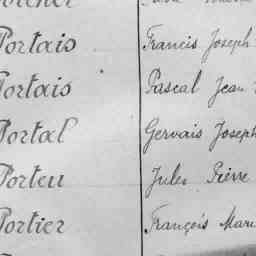 Portais Francis Joseph
Portais Pascal Jean
Portal Gervais Joseph
Porteu Jules Pierre
Portier François Mari